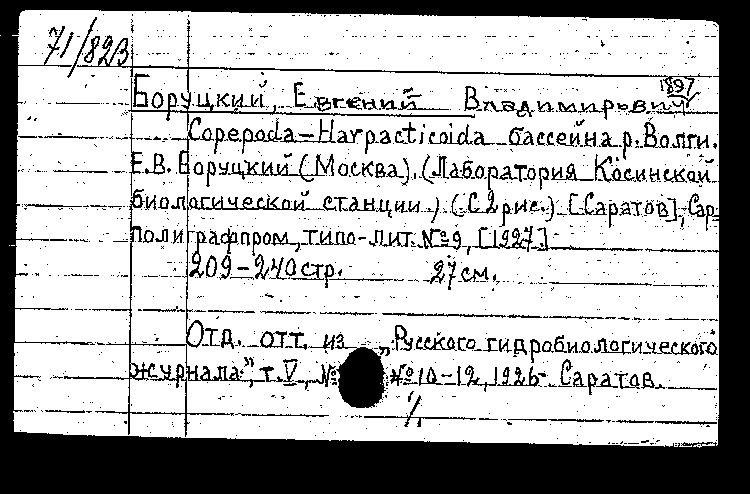 71/823
1897
Боруцкий, Евгений Владимирович
Copepoda – Harpacticoida бассейна р. Волги.
Е.В. Боруцкий (Москва). (Лаборатория Косинской
биологической станции.) (С 2 рис.) [Саратов], Сар-
полиграфпром, типо-лит. №9, [1927]
209–240 стр. 27 см.
Отд. отт. из „Русского гидробиологического
журнала", т. V, № №10–12, 1926 Саратов.